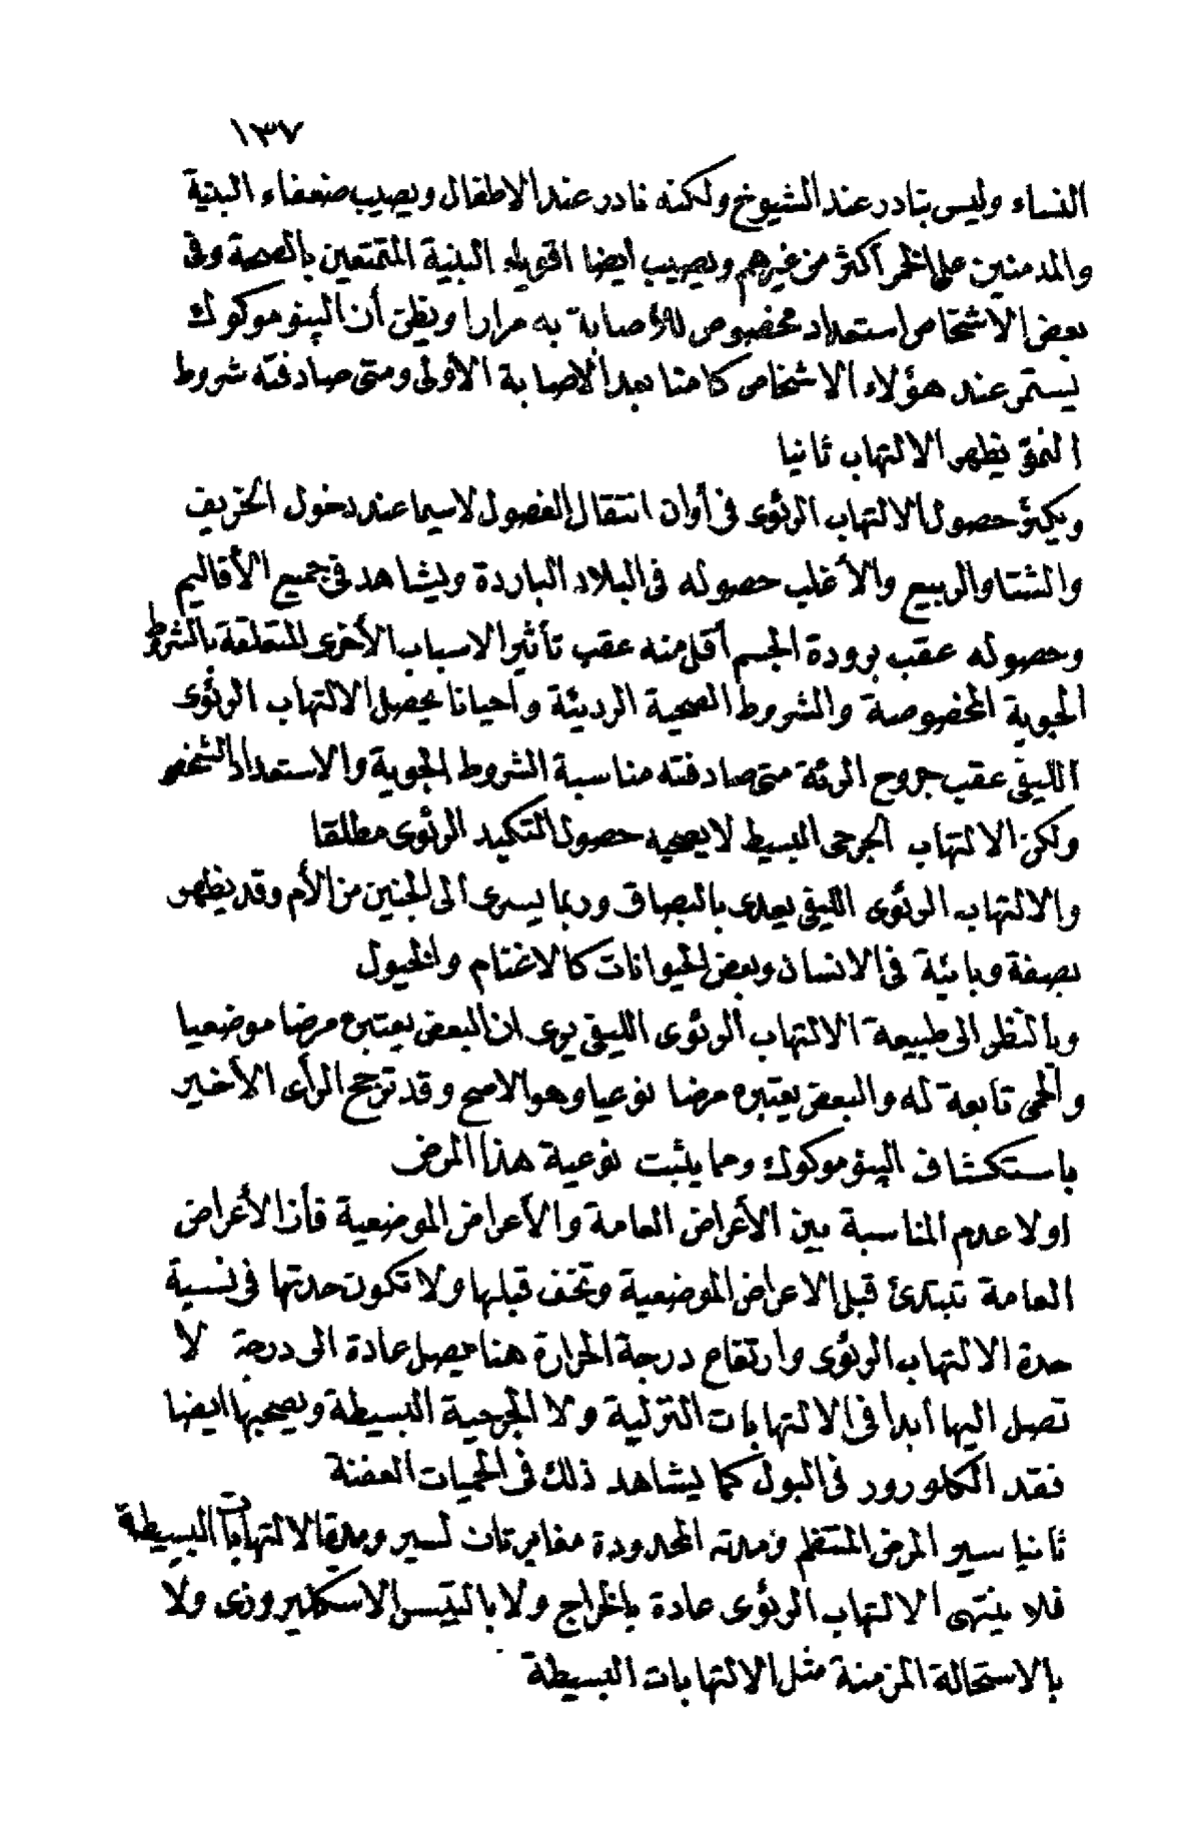 ١٣٧
النساء وليس بنادر عند الشيوخ ولكنه نادر عند الاطفال ويصيب ضعفاء البنية
والمدمنين على الخمر أكثر من غيرهم ويصيب ايضا اقوياء البنية المتمتعين بالصحة وفى
بعض الاشخاص استعداد مخصوص للأصابة به مرارا ويظن أن الپنوموكوك
يستمر عند هؤلاء الاشخاص كامنا بعد الاصابة الأولى ومتى صادفته شروط
النمو يظهر الالتهاب ثانيا
ويكثر حصول الالتهاب الرئوى فى أوان انتقال الفصول لاسيما عند دخول الخريف
والشتا والربيع والأغلب حصوله فى البلاد الباردة ويشاهد فى جميع الأقاليم
وحصوله عقب برودة الجسم أقل منه عقب تأثير الاسباب الأخرى المتعلقة بالشروط
الجوية المخصوصة والشروط الصحية الرديئة وأحيانا يحصل الالتهاب الرئوى
الليفى عقب جروح الرئة متى صادفته مناسبة الشروط الجوية والاستعداد الشخصى
ولكن الالتهاب الجرحى البسيط لا يصحبه حصول التكبد الرئوى مطلقا
والالتهاب الرئوى الليفى يعدى بالبصاق وربما يسرى الى الجنين من الأم وقد يظهر
بصفة وبائية فى الانسان وبعض الحيوانات كالاغنام والخيول
وبالنظر الى طبيعة الالتهاب الرئوى الليفى يرى ان البعض يعتبره مرضا موضعيا
والحمى تابعة له والبعض يعتبره مرضا نوعيا وهو الاصح وقد ترجح الرأى الأخير
باستكشاف الپنوموكوك ومما يثبت نوعية هذا المرض
اولا عدم المناسبة بين الأعراض العامة والأعراض الموضعية فأن الأعراض
العامة تبتدئ قبل الاعراض الموضعية وتخف قبلها ولا تكون حدتها فى نسبة
حدة الالتهاب الرئوى وارتفاع درجة الحرارة هنا يصل عادة الى درجة لا
تصل اليها أبدا فى الالتهابات النزلية ولا الجرحية البسيطة ويصحبها ايضا
فقد الكلورور فى البول كما يشاهد ذلك فى الحميات العفنة
ثانيا سير المرض المنتظم ومدته المحدودة مغايرتان لسير ومدة الالتهابات البسيطة
فلا ينتهى الالتهاب الرئوى عادة بالخراج ولا باليتبس الاسكليروزى ولا
بالاستحالة المزمنة مثل الالتهابات البسيطة